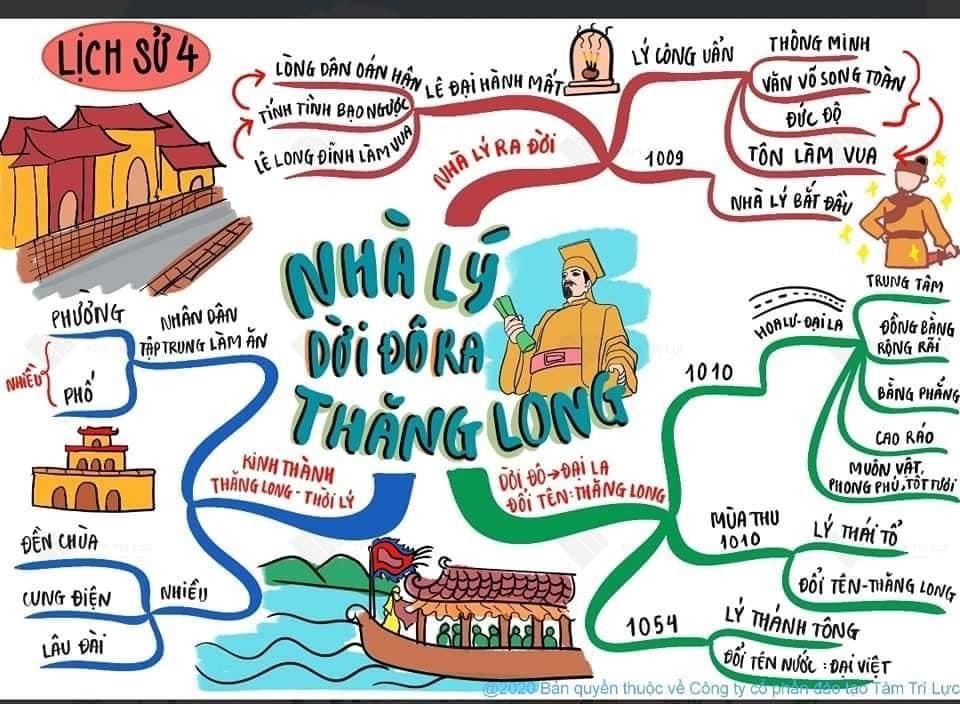 LỊCH SỬ 4
NHÀ LÝ
DỜI ĐÔ RA
THĂNG LONG
NHÀ LÝ RA ĐỜI
LÊ ĐẠI HÀNH MẤT
LÒNG DÂN OÁN HẬN
TÍNH TÌNH BẠO NGƯỢC
LÊ LONG ĐĨNH LÀM VUA
LÝ CÔNG UẨN
THÔNG MINH
VĂN VÕ SONG TOÀN
ĐỨC ĐỘ
TÔN LÀM VUA
1009
NHÀ LÝ BẮT ĐẦU
DỜI ĐÔ → ĐẠI LA
ĐỔI TÊN: THĂNG LONG
1010
HOA LƯ - ĐẠI LA
TRUNG TÂM
ĐỒNG BẰNG
RỘNG RÃI
BẰNG PHẲNG
CAO RÁO
MUÔN VẬT
PHONG PHÚ, TỐT TƯƠI
MÙA THU
1010
LÝ THÁI TỔ
ĐỔI TÊN - THĂNG LONG
1054
LÝ THÁNH TÔNG
ĐỔI TÊN NƯỚC: ĐẠI VIỆT
KINH THÀNH
THĂNG LONG - THỜI LÝ
NHÂN DÂN
TẬP TRUNG LÀM ĂN
PHƯỜNG
NHIỀU
PHỐ
NHIỀU
ĐỀN CHÙA
CUNG ĐIỆN
LÂU ĐÀI
@2020 Bản quyền thuộc về Công ty cổ phần đào tạo Tâm Trí Lực